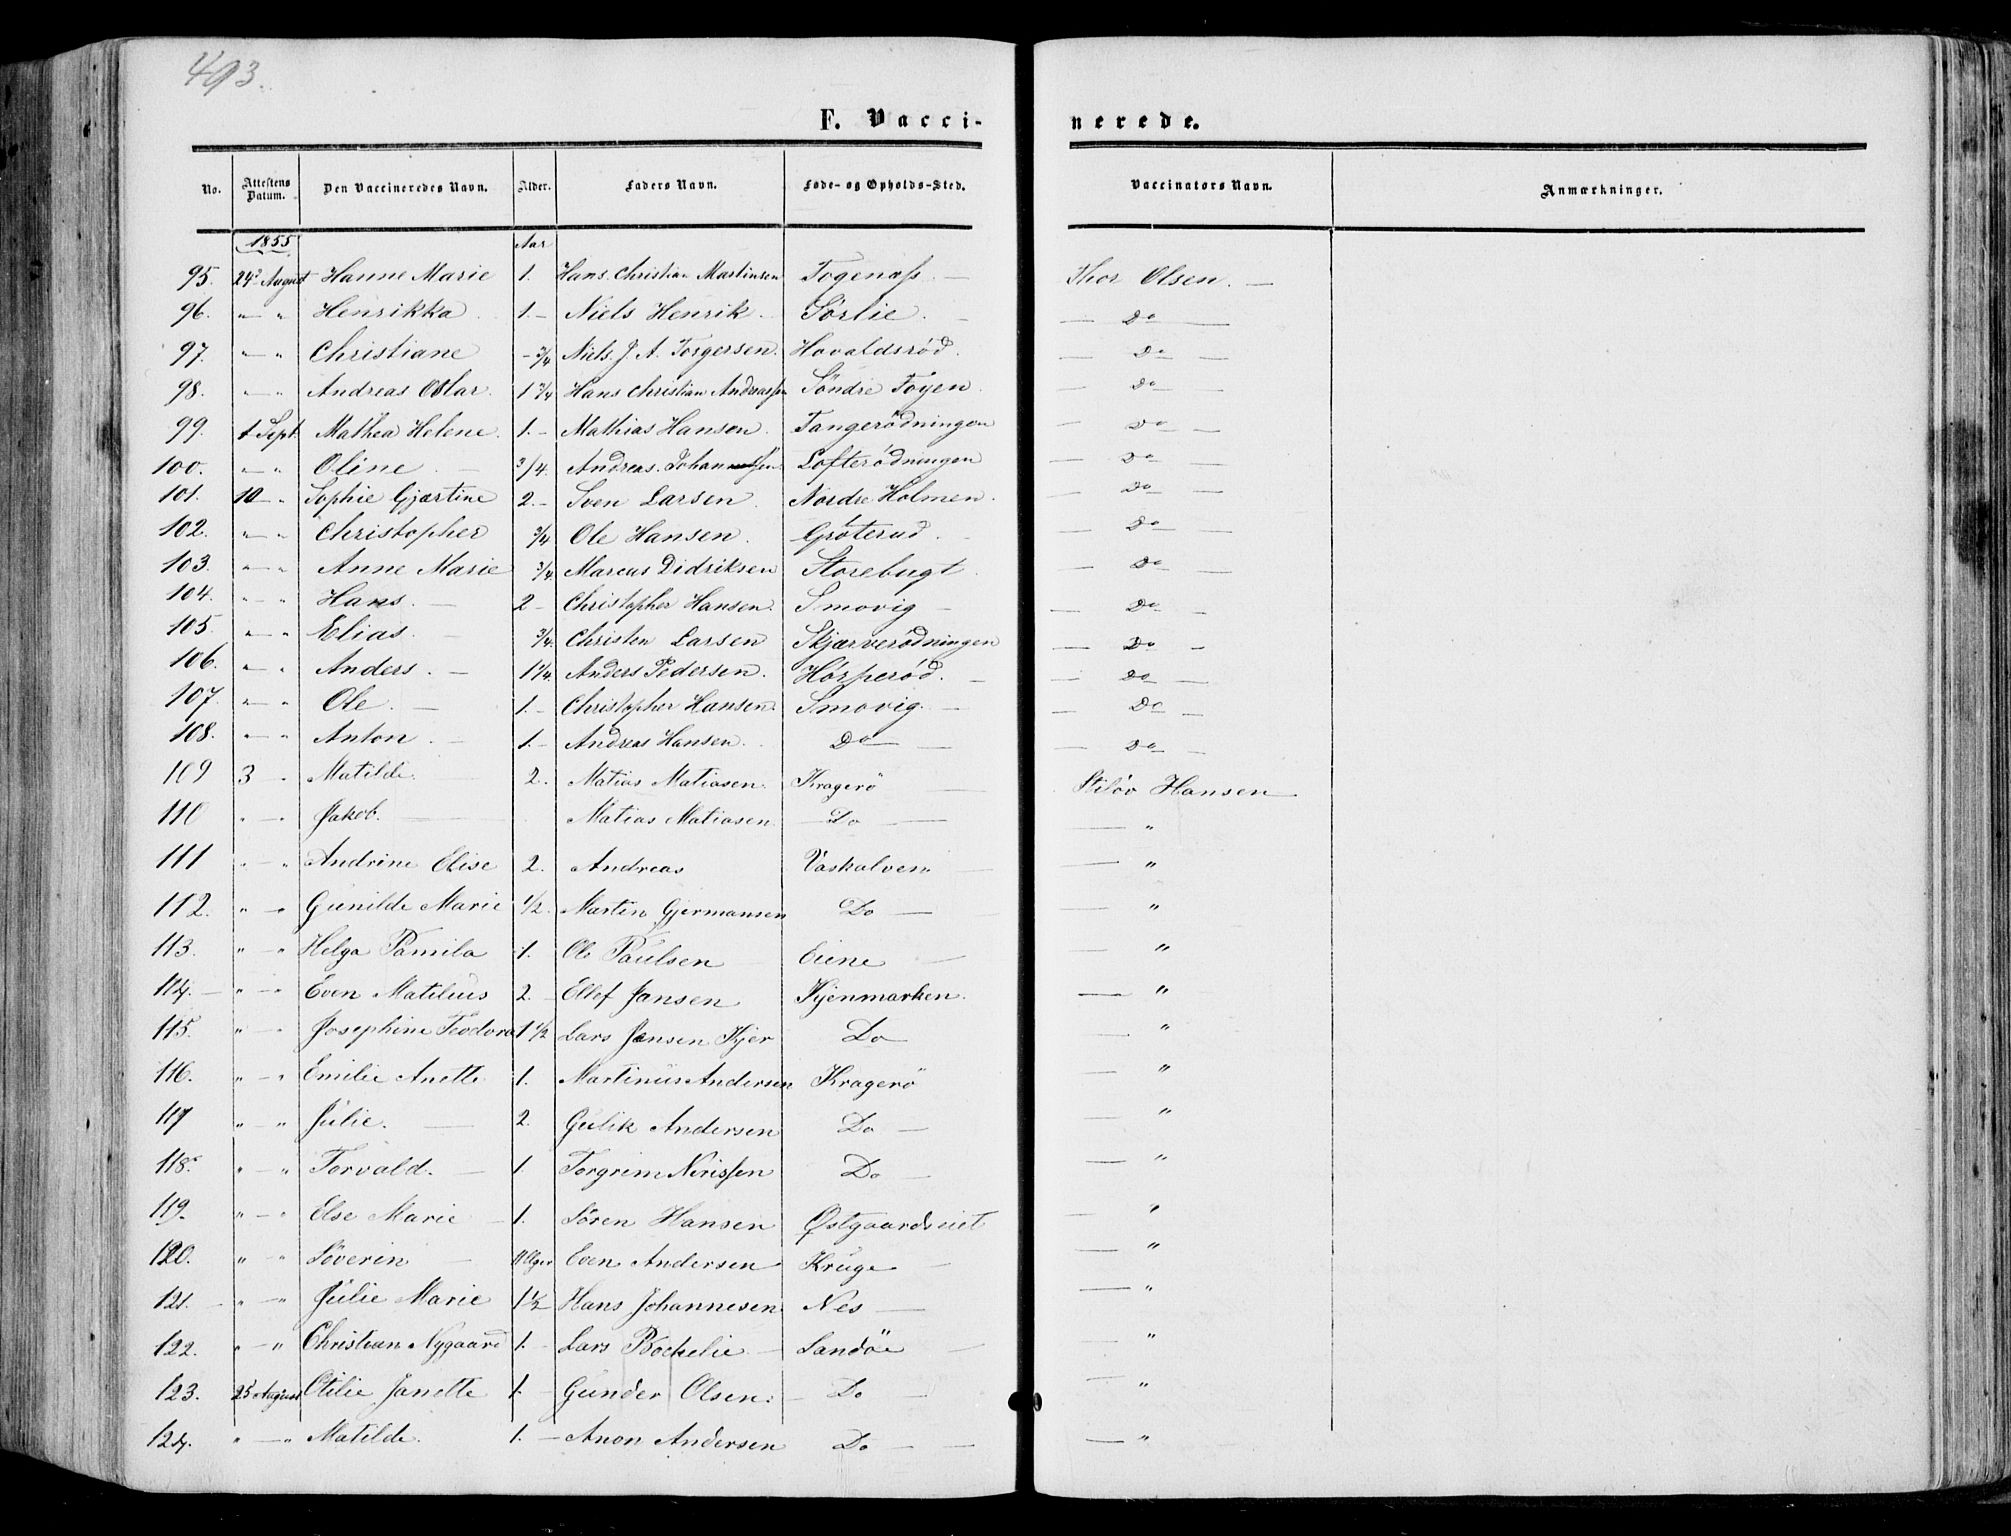 493.
F. Vaccinerede.
No. Attestens Datum. Den Vaccineredes Navn. Alder. Faders Navn. Føde- og Opholds-Sted. Vaccinators Navn. Anmærkninger.
1855 Aar
95. 24de August Hanne Marie 1. Hans Christian Martinsen Togenæss Thor Olsen.
96. " " Henrikka 1. Niels Henrik Sörlie. Do
97. " " Christiane 3/4 Niels J. A. Torgersen. Hovaldsrød. Do
98. " " Andreas 1 3/4 Hans Christian Andreassen Söndre Toyen Do
99. 1 Sept. Mathea Helene. 1. Mathias Hansen Tangerödningen Do
100. " " Oline 3/4. Andreas Johannessen Lofterödningen Do
101. 10 " Sophie Gjærtine 2. Sven Larsen Nordre Holmen. Do
102. " " Christopher 3/4 Ole Hansen. Gröterud. Do
103. " " Anne Marie 3/4 Marcus Didriksen Storebugt Do
104. " " Hans. 2 Christopher Hansen. Smovig Do
105. " " Elias. 3/4. Christen Larsen Skjærverödningen Do
106. " " Anders. 1 1/4. Anders Pedersen. Do
107. " " Ole. 1. Christopher Hansen. Smovig. Do
108. " " Anton. 1. Andreas Hansen. Do Do
109 3 " Matilde. 2. Matias Matiasen. Kragerö Hansen
110 " " Jakob. Matias Matiasen Do "
111 " " Andrine Elise 2. Andreas Vaskalven "
112. " " Gunilde Marie 1/2. Martin Gjermansen Do "
113. " " Helga Pamila 1. Ole Paulsen Eiene "
114. " " Even Matilius 2. Ellef Jansen Kjenmarken. "
115. " " Josephine Teodora 1 1/2 Lars Jansen Kjer Do "
116. " " Emilie Anette 1. Martinius Andersen Kragerö "
117 " " Julie. 2. Gulik Andersen Do "
118. " " Torvald. 1. Torgrim Nirissen Do "
119. " " Else Marie 1. Sören Hansen Østgaardseiet "
120. " " Söverin Even Andersen Kruge "
121. " " Julie Marie 1 1/2 Hans Johannesen Nes "
122. " " Christian Nygaard 1. Lars Bochelie Sandöe "
123. 25 August Otilie Janette 1. Gunder Olsen. Do "
124. " " Matilde. 1. Anon Andersen Do "